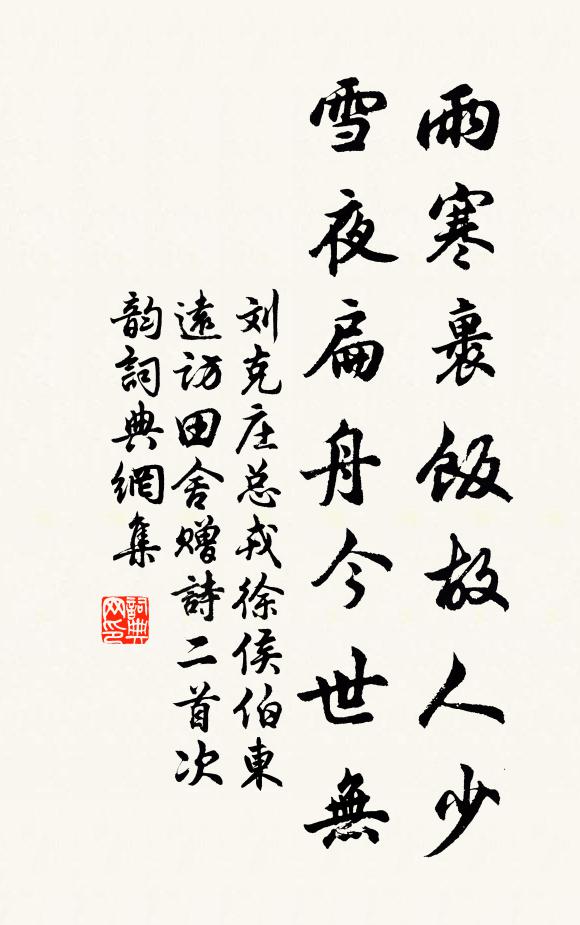 雨寒裹飯故人少
雪夜扁舟今世無
刘克庄总戎徐侯伯東
遠访田舍赠詩二首次
韵詞典網集
詞典
网印